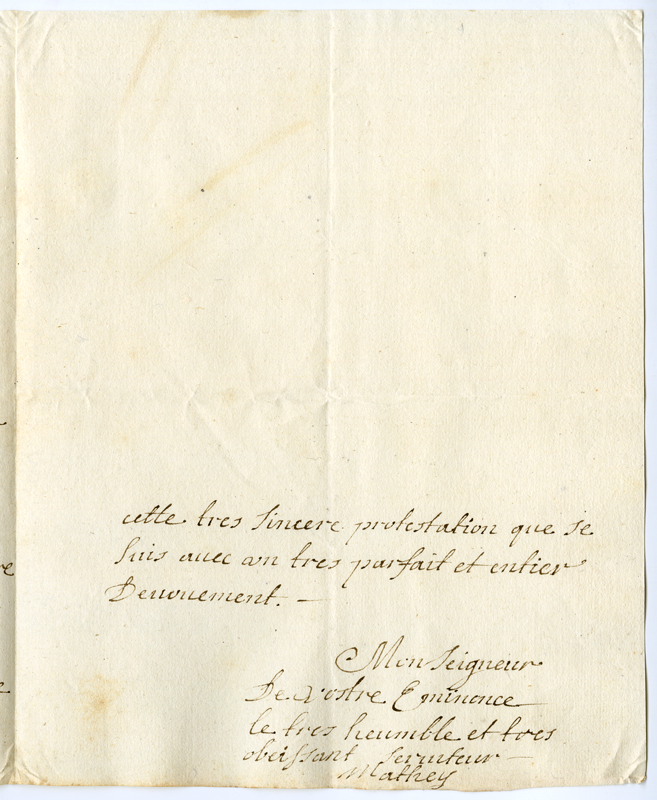 cette tres sincere protestation que je
suis avec un tres parfait et entier
Devouement. —
Monseigneur
De Vostre Eminence
le tres heumble et tres
obeissant serviteur —
Mathey